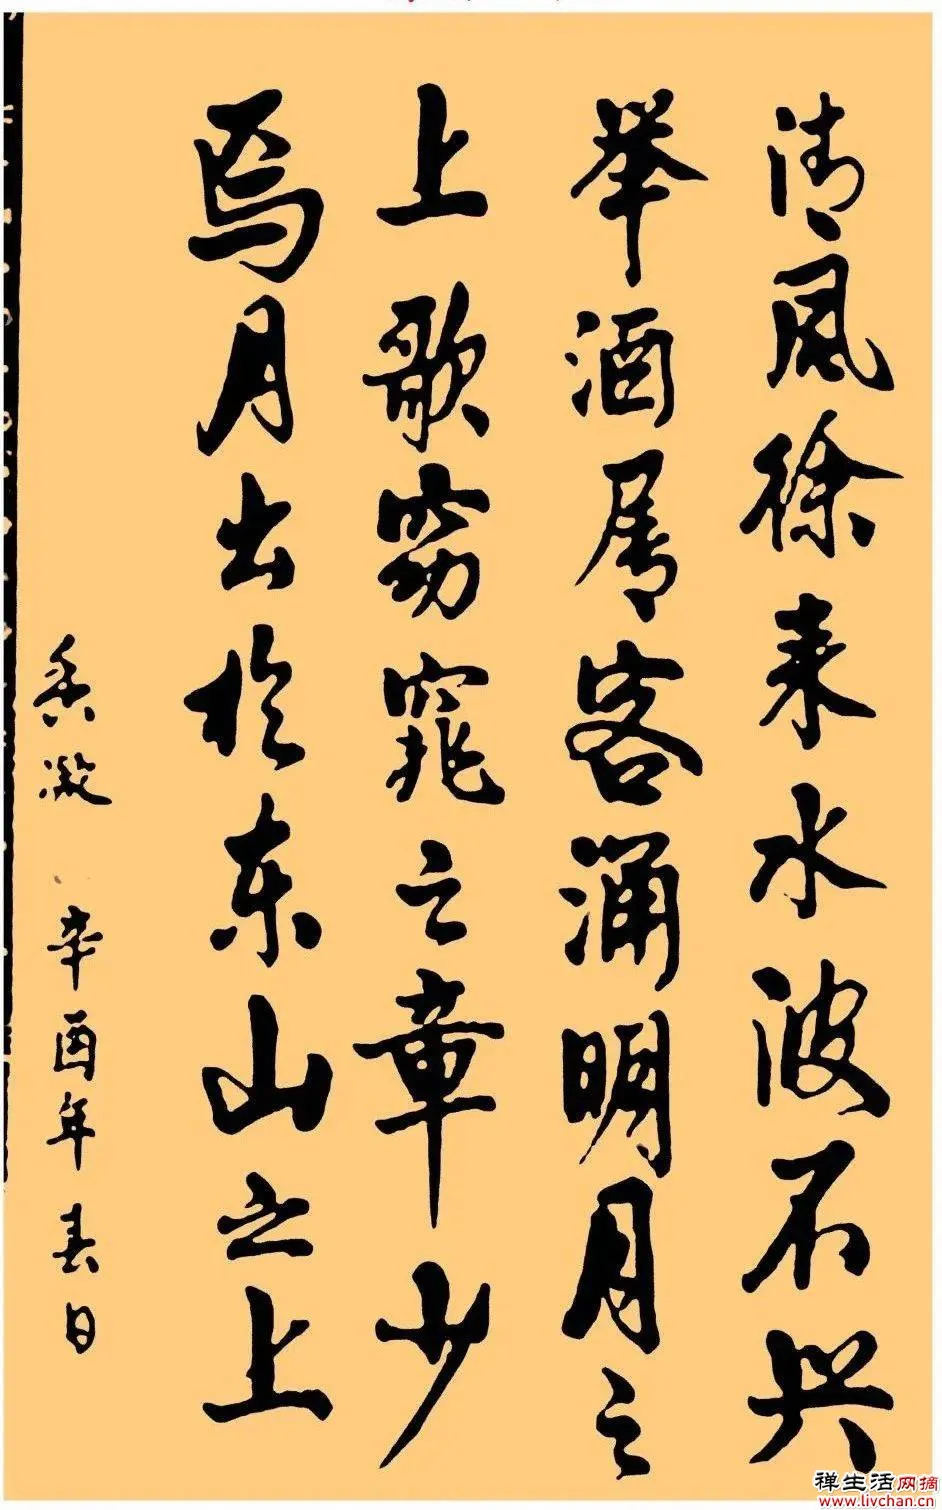 清风徐来水波不兴
举酒属客涌明月之
上歌窈窕之章少
焉月出於东山之上
香凝 辛酉年春日
禅生活网摘
www.livchan.cn